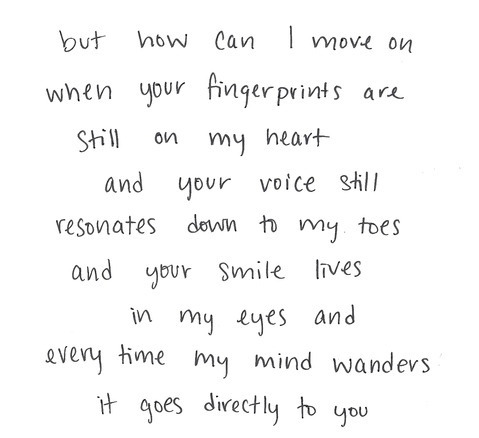 but how can I move on
when your fingerprints are
still on my heart
and your voice still
resonates down to my toes
and your smile lives
in my eyes and
every time my mind wanders
it goes directly to you